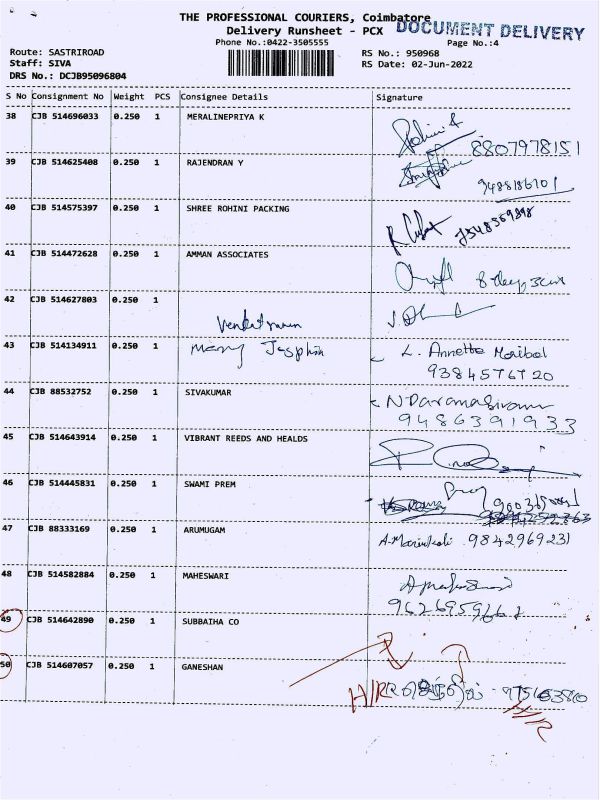 THE PROFESSIONAL COURIERS, Coimbatore
DOCUMENT DELIVERY
Delivery Runsheet - PCX
Phone No.:0422-3505555
Page No.:4
Route: SASTRIROAD
RS No.: 950968
Staff: SIVA
RS Date: 02-Jun-2022
DRS No.: DCJB95096804
S No Consignment No Weight PCS Consignee Details Signature
38 CJB 514696033 0.250 1 MERALINEPRIYA K
8807978151
39 CJB 514625408 0.250 1 RAJENDRAN Y
9488186701
40 CJB 514575397 0.250 1 SHREE ROHINI PACKING
41 CJB 514472628 0.250 1 AMMAN ASSOCIATES
42 CJB 514627803 0.250 1
43 CJB 514134911 0.250 1 Mary L. Annette Maribel
9384576720
44 CJB 88532752 0.250 1 SIVAKUMAR
N Daramasivam
9486391933
45 CJB 514643914 0.250 1 VIBRANT REEDS AND HEALDS
46 CJB 514445831 0.250 1 SWAMI PREM
47 CJB 88333169 0.250 1 ARUMUGAM
9842969231
48 CJB 514582884 0.250 1 MAHESWARI
49 CJB 514642890 0.250 1 SUBBAIHA CO
50 CJB 514607057 0.250 1 GANESHAN